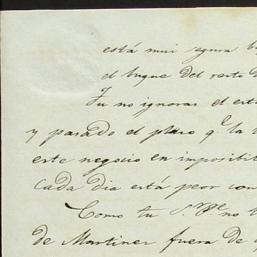 está mui segura
el buque del resto
Tu no ignoras el est
y pasado el plazo qe la
este negocio en imposibi
cada dia está peor con
Como tu no
de Martinez fuera de